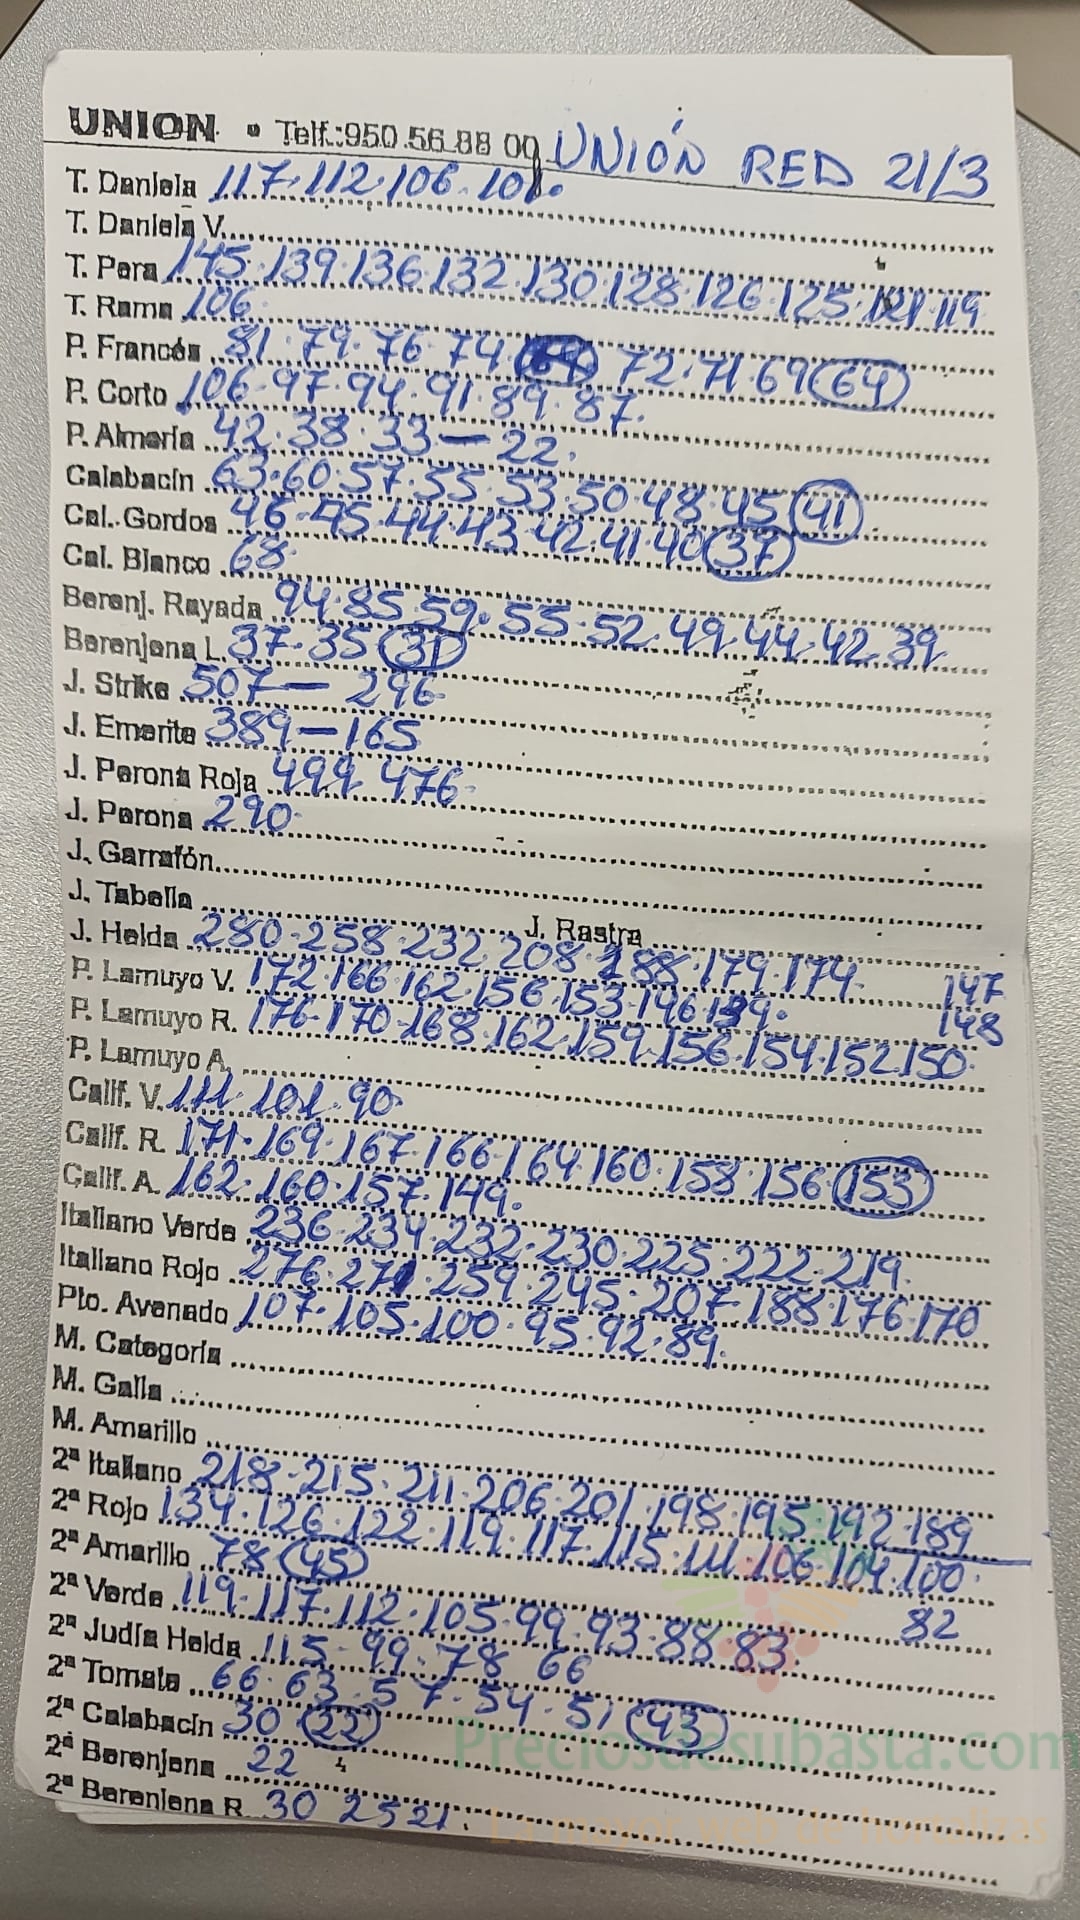 UNION • Telf.:950.56.88 00 UNIÓN RED 21/3
T. Daniela 117.112.106.101.
T. Daniela V.
T. Pera 145.139.136.132.130.128.126.125.121.119
T. Rama 106.
P. Francés 81.79.76.74 72.71.69 64
P. Corto 106.97.94.91.89.87.
P. Almería 42.38.33—22.
Calabacín 63.60.57.55.53.50.48.45 41
Cal. Gordos 46.45.44.43.42.41.40 37
Cal. Blanco 68.
Berenj. Rayada 94.85.59.55.52.49.44.42.39
Berenjena L. 37.35 31
J. Strike 507— 296.
J. Emerite 389—165
J. Perona Roja 499 476.
J. Perona 290.
J. Garrafón
J. Tabella J. Rastra
J. Helda 280.258.232.208.188.179.174.
P. Lamuyo V. 172.166.162.156.153.146.139. 147
P. Lamuyo R. 176.170.168.162.159.156.154.152.150. 148
P. Lamuyo A.
Calif. V. 111.101.90.
Calif. R. 171.169.167.166.164.160.158.156 153
Calif. A. 162.160.157.149.
Italiano Verde 236.234.232.230.225.222.219.
Italiano Rojo 276.271.259.245.207.188.176.170
Pto. Avenado 107.105.100.95.92.89.
M. Categoría
M. Galia
M. Amarillo
2ª Italiano 218.215.211.206.201.198.195.192.189
2ª Rojo 134.126.122.119.117.115.111.106.104.100.
2ª Amarillo 78 45
2ª Verde 119.117.112.105.99.93.88.83 82
2ª Judía Helda 115.99.78 66
2ª Tomate 66.63.57.54.51 43
2ª Calabacín 30 22
2ª Berenjena 22
2ª Berenjena R. 30 25 21.
Preciosdesubasta.com
La mayor web de hortalizas